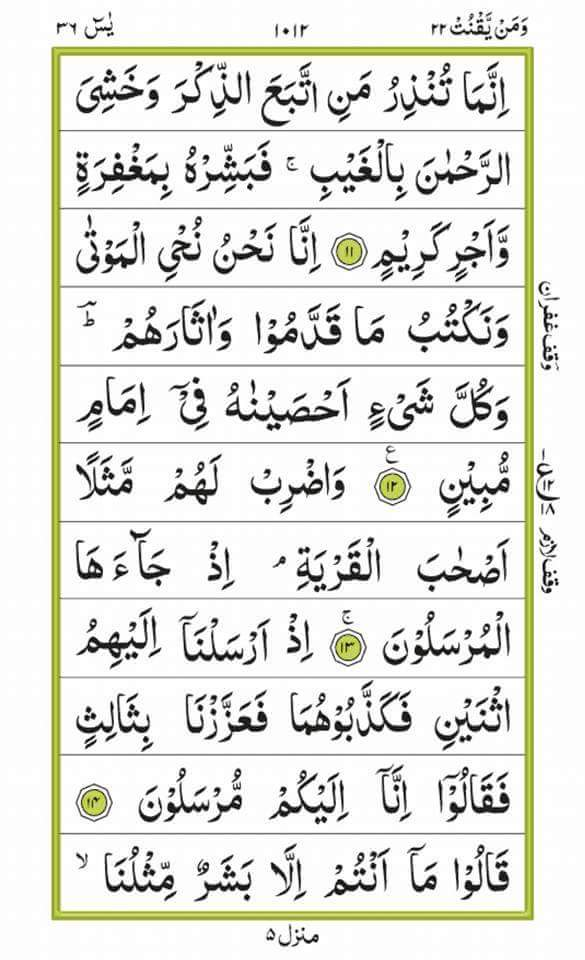 وَمَنْ يَّقْنُتْ ٢٢ ١٠١٢ يٰسٓ ٣٦
اِنَّمَا تُنْذِرُ مَنِ اتَّبَعَ الذِّكْرَ وَخَشِىَ
الرَّحْمٰنَ بِالْغَيْبِ ۚ فَبَشِّرْهُ بِمَغْفِرَةٍ
وَّاَجْرٍ كَرِيْمٍ ١١ اِنَّا نَحْنُ نُحْىِ الْمَوْتٰى
وَنَكْتُبُ مَا قَدَّمُوْا وَاٰثَارَهُمْ ؕ
وَكُلَّ شَىْءٍ اَحْصَيْنٰهُ فِىْٓ اِمَامٍ
مُّبِيْنٍ ١٢ ع وَاضْرِبْ لَهُمْ مَّثَلًا
اَصْحٰبَ الْقَرْيَةِ ۘ اِذْ جَآءَهَا
الْمُرْسَلُوْنَ ١٣ ۚ اِذْ اَرْسَلْنَاۤ اِلَيْهِمُ
اثْنَيْنِ فَكَذَّبُوْهُمَا فَعَزَّزْنَا بِثَالِثٍ
فَقَالُوْۤا اِنَّاۤ اِلَيْكُمْ مُّرْسَلُوْنَ ١٤
قَالُوْا مَاۤ اَنْتُمْ اِلَّا بَشَرٌ مِّثْلُنَا ۙ
وقف غفران
وقف لازم
منزل ٥